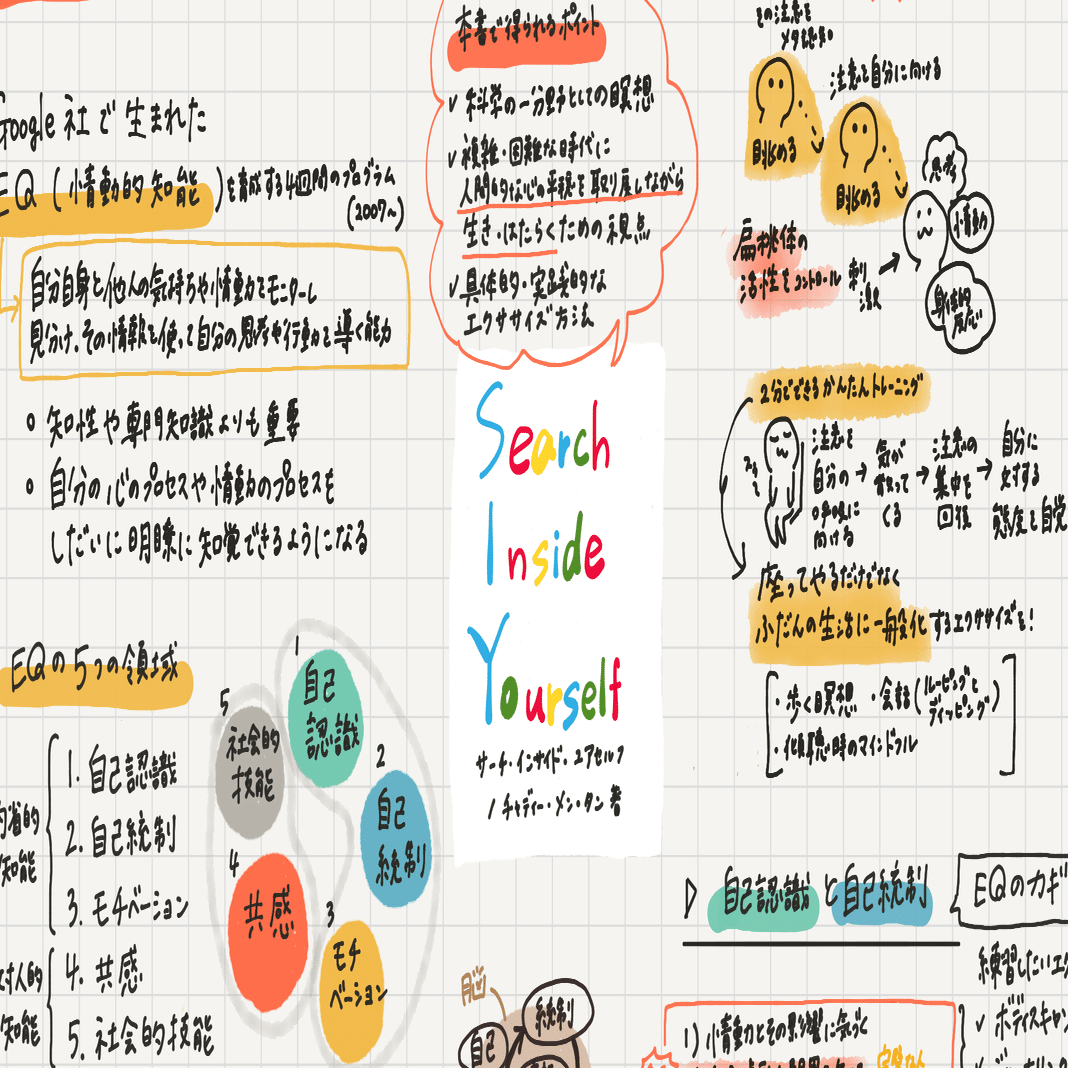 Google 社で生まれた
EQ(情動的知能)を育成する4回間のプログラム
(2007~)
自分自身と他人の気持ちや情動をモニターし
見分け、その情報を使って自分の思考や行動を導く能力
知性や専門知識よりも重要
自分の心のプロセスや情動のプロセスを
しだいに明瞭に知覚できるようになる
EQの5つの領域
1. 自己認識
2. 自己統制
3. モチベーション
4. 共感
5. 社会的技能
内省的
知能
対人的
知能
1
自己
認識
2
自己
統制
3
モチ
ベーション
4
共感
5
社会的
技能
本書で得られるポイント
✓ 科学の一分野としての瞑想
✓ 複雑・困難な時代に
人間的な心の平穏を取り戻しながら
生き・はたらくための視点
✓ 具体的・実践的な
エクササイズ方法
Search
Inside
Yourself
サーチ・インサイド・ユアセルフ
/チャディー・メン・タン 著
脳
統制
自己
その注意を
メタ認知
注意を自分に向ける
眺める
眺める
扁桃体の
活性をコントロール
刺激
思考
情動
身体的
反応
2分でできるかんたんトレーニング
注意を
自分の
呼吸に
向ける
→
気が
散って
くる
→
注意の
集中を
回復
→
自分に
対する
態度を自覚
座ってやるだけでなく
ふだんの生活に一般化するエクササイズも!
・歩く瞑想 ・会話(ルーピングと
ディッピング)
・傾聴時のマインドフル
▷ 自己認識と自己統制
EQのカギ
練習したいエク
✓ ボディスキャン
1) 情動とその影響に気づく